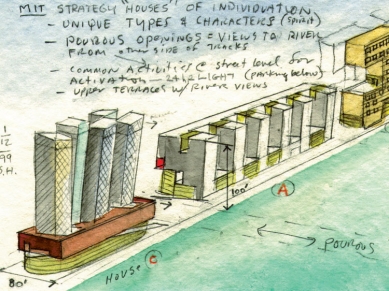 MIT STRATEGY "HOUSES" OF INDIVIDUATION
- UNIQUE TYPES & CHARACTERS (spirit)
- POUROUS OPENINGS & VIEWS TO RIVER
FROM other SIDE OF TRACKS
- COMMON ACTIVITIES @ street level for
ACTIVATION - 24 hr LIGHT (PARKING below)
- UPPER TERRACES w/ RIVER VIEWS
1
12
99
S.H.
100'
A
POUROUS
HOUSE C
80'